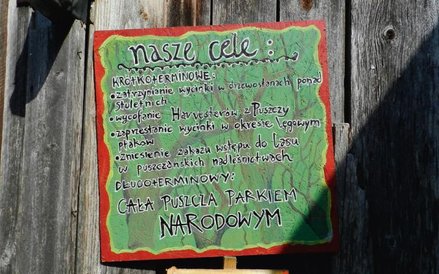 nasze cele:
KRÓTKOTERMINOWE:
• zatrzymanie wycinki w drzewostanach ponad
stuletnich
• wycofanie Harvesterów z Puszczy
• zaprzestanie wycinki w okresie lęgowym
ptaków
• zniesienie zakazu wstępu do lasu
w puszczańskich nadleśnictwach
DŁUGOTERMINOWY:
CAŁA PUSZCZA PARKIEM
NARODOWYM